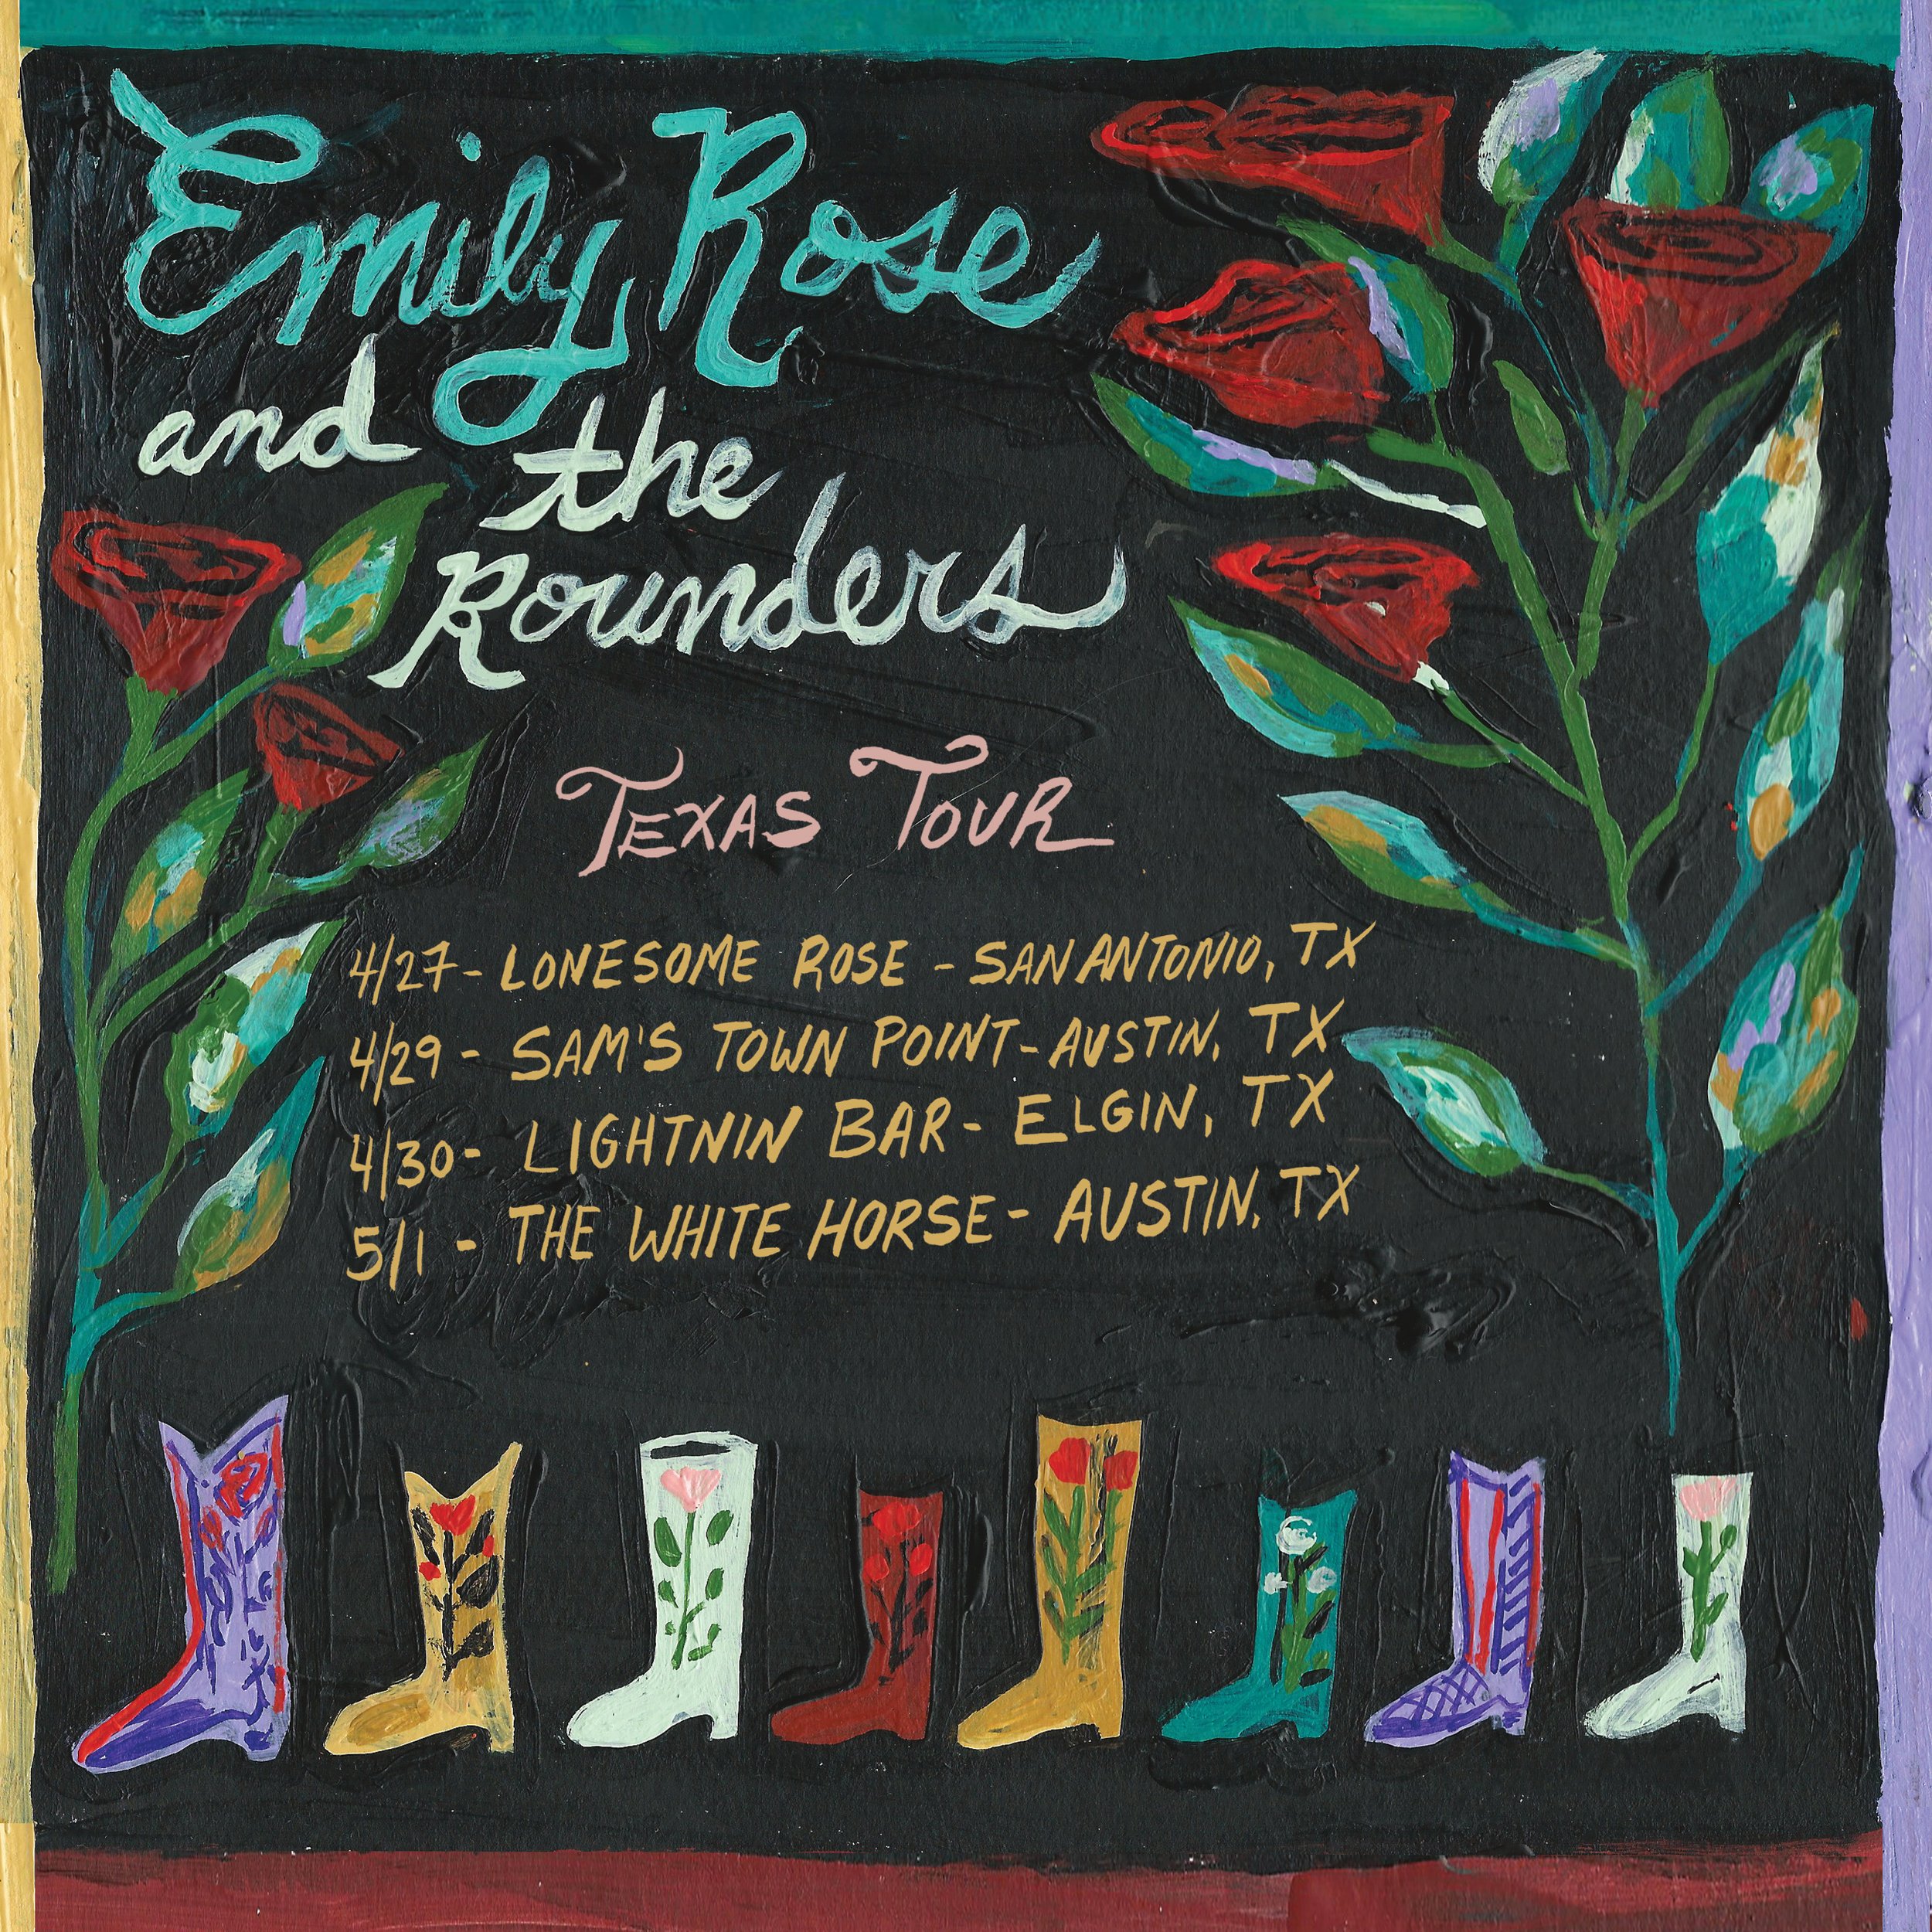 Emily Rose
and the
Rounders
TEXAS TOUR
4/27- LONESOME ROSE - SAN ANTONIO, TX
4/29 - SAM'S TOWN POINT - AUSTIN, TX
4/30- LIGHTNIN BAR - ELGIN, TX
5/1 - THE WHITE HORSE - AUSTIN, TX